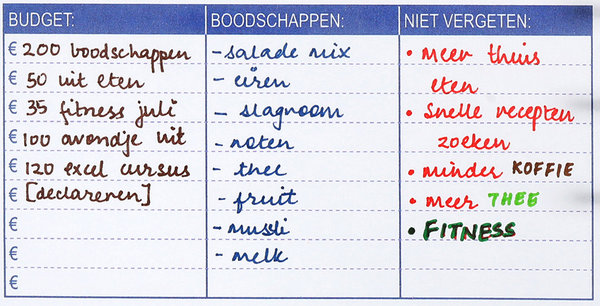 BUDGET:
€ 200 boodschappen
€ 50 uit eten
€ 35 fitness juli
€ 100 avondje uit
€ 120 excel cursus
€ [declareren]
€
€
€
BOODSCHAPPEN:
- salade mix
- eiren
- slagroom
- noten
- thee
- fruit
- mussli
- melk
NIET VERGETEN:
• meer thuis
eten
• Snelle recepten
zoeken
• minder KOFFIE
• meer THEE
• FITNESS